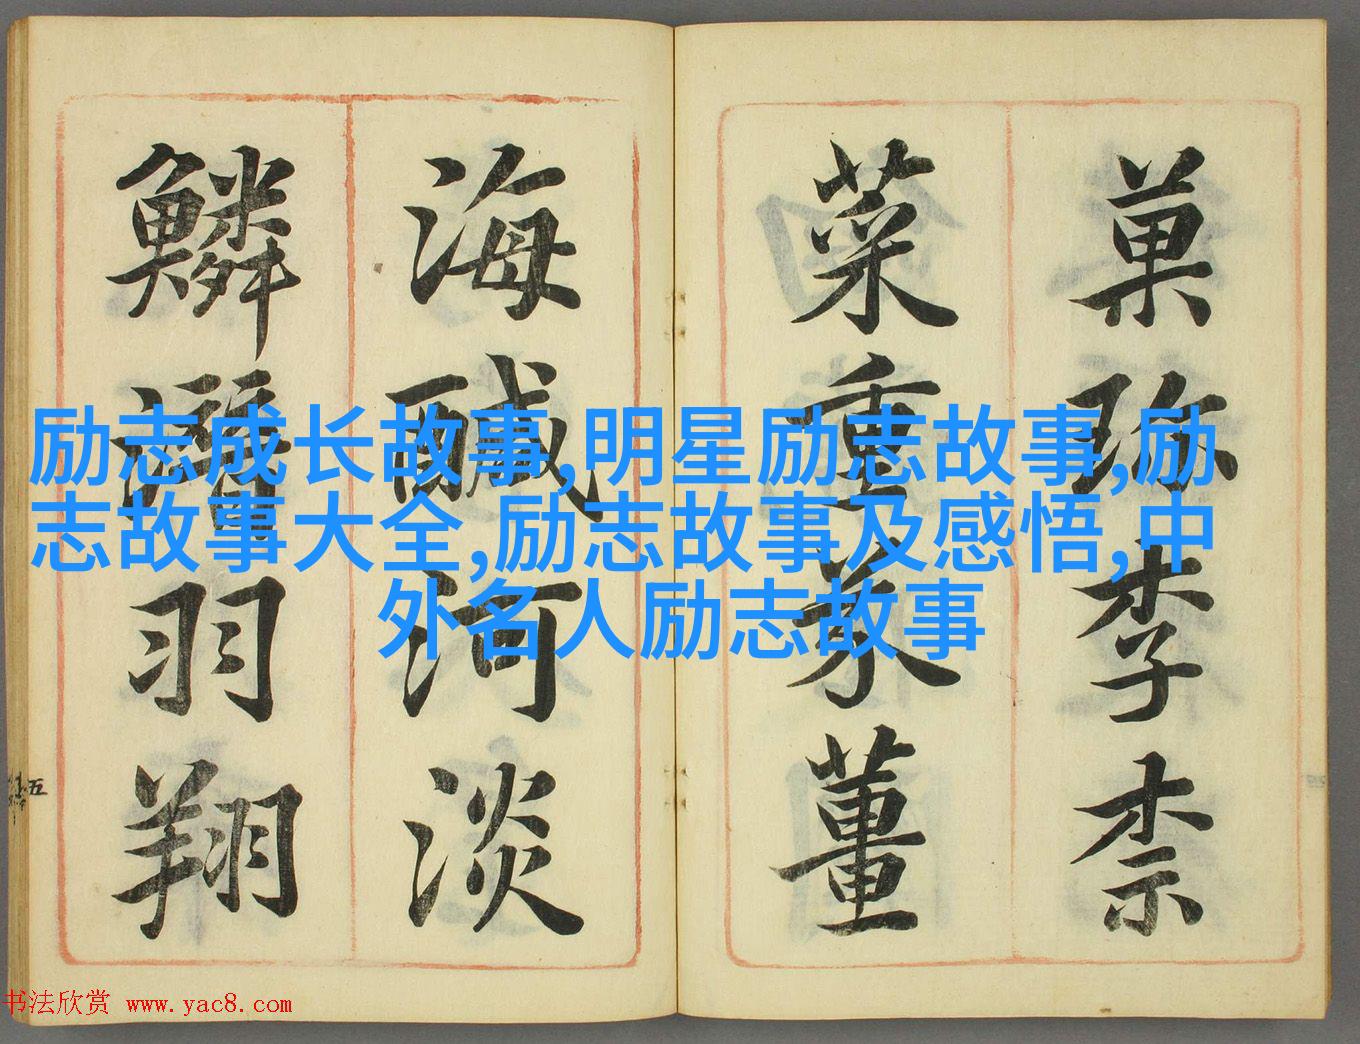 菓珍李柰
菜重芥薑
海醎河淡
鱗潛羽翔
五
励志成长故事,明星励志故事,励
志故事大全,励志故事及感悟,中
外名人励志故事
书法欣赏 www.yac8.com